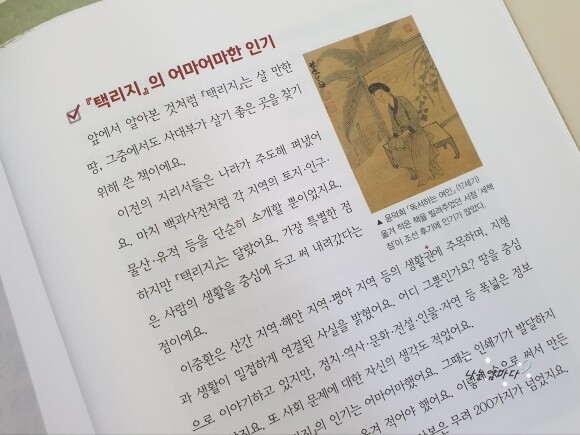 『택리지』의 어마어마한 인기
앞에서 알아본 것처럼 『택리지』는 살 만한
땅, 그중에서도 사대부가 살기 좋은 곳을 찾기
위해 쓴 책이에요.
이전의 지리서들은 나라가 주도해 펴냈어
요. 마치 백과사전처럼 각 지역의 토지·인구·
물산·유적 등을 단순히 소개할 뿐이었지요.
하지만 『택리지』는 달랐어요. 가장 특별한 점
은 사람의 생활을 중심에 두고 써 내려갔다는
점이에요.
▲ 윤덕희 「독서하는 여인」 (17세기)
옮겨 적은 책을 빌려주었던 서점 '세책
점'이 조선 후기에 인기가 많았다.
이중환은 산간 지역·해안 지역·평야 지역 등의 생활권에 주목하며, 지형
과 생활이 밀접하게 연결된 사실을 밝혔어요. 어디 그뿐인가요? 땅을 중심
으로 이야기하고 있지만, 정치·역사·문화·전설·인물·자연 등 폭넓은 정보
요. 또 사회 문제에 대한 자신의 생각도 적었어요.
의 인기는 어마어마했어요. 그때는 인쇄기가 발달하지
옮겨 적어야 했어요. 이렇게 으로 써서 만든
무려 200가지가 넘었지요.